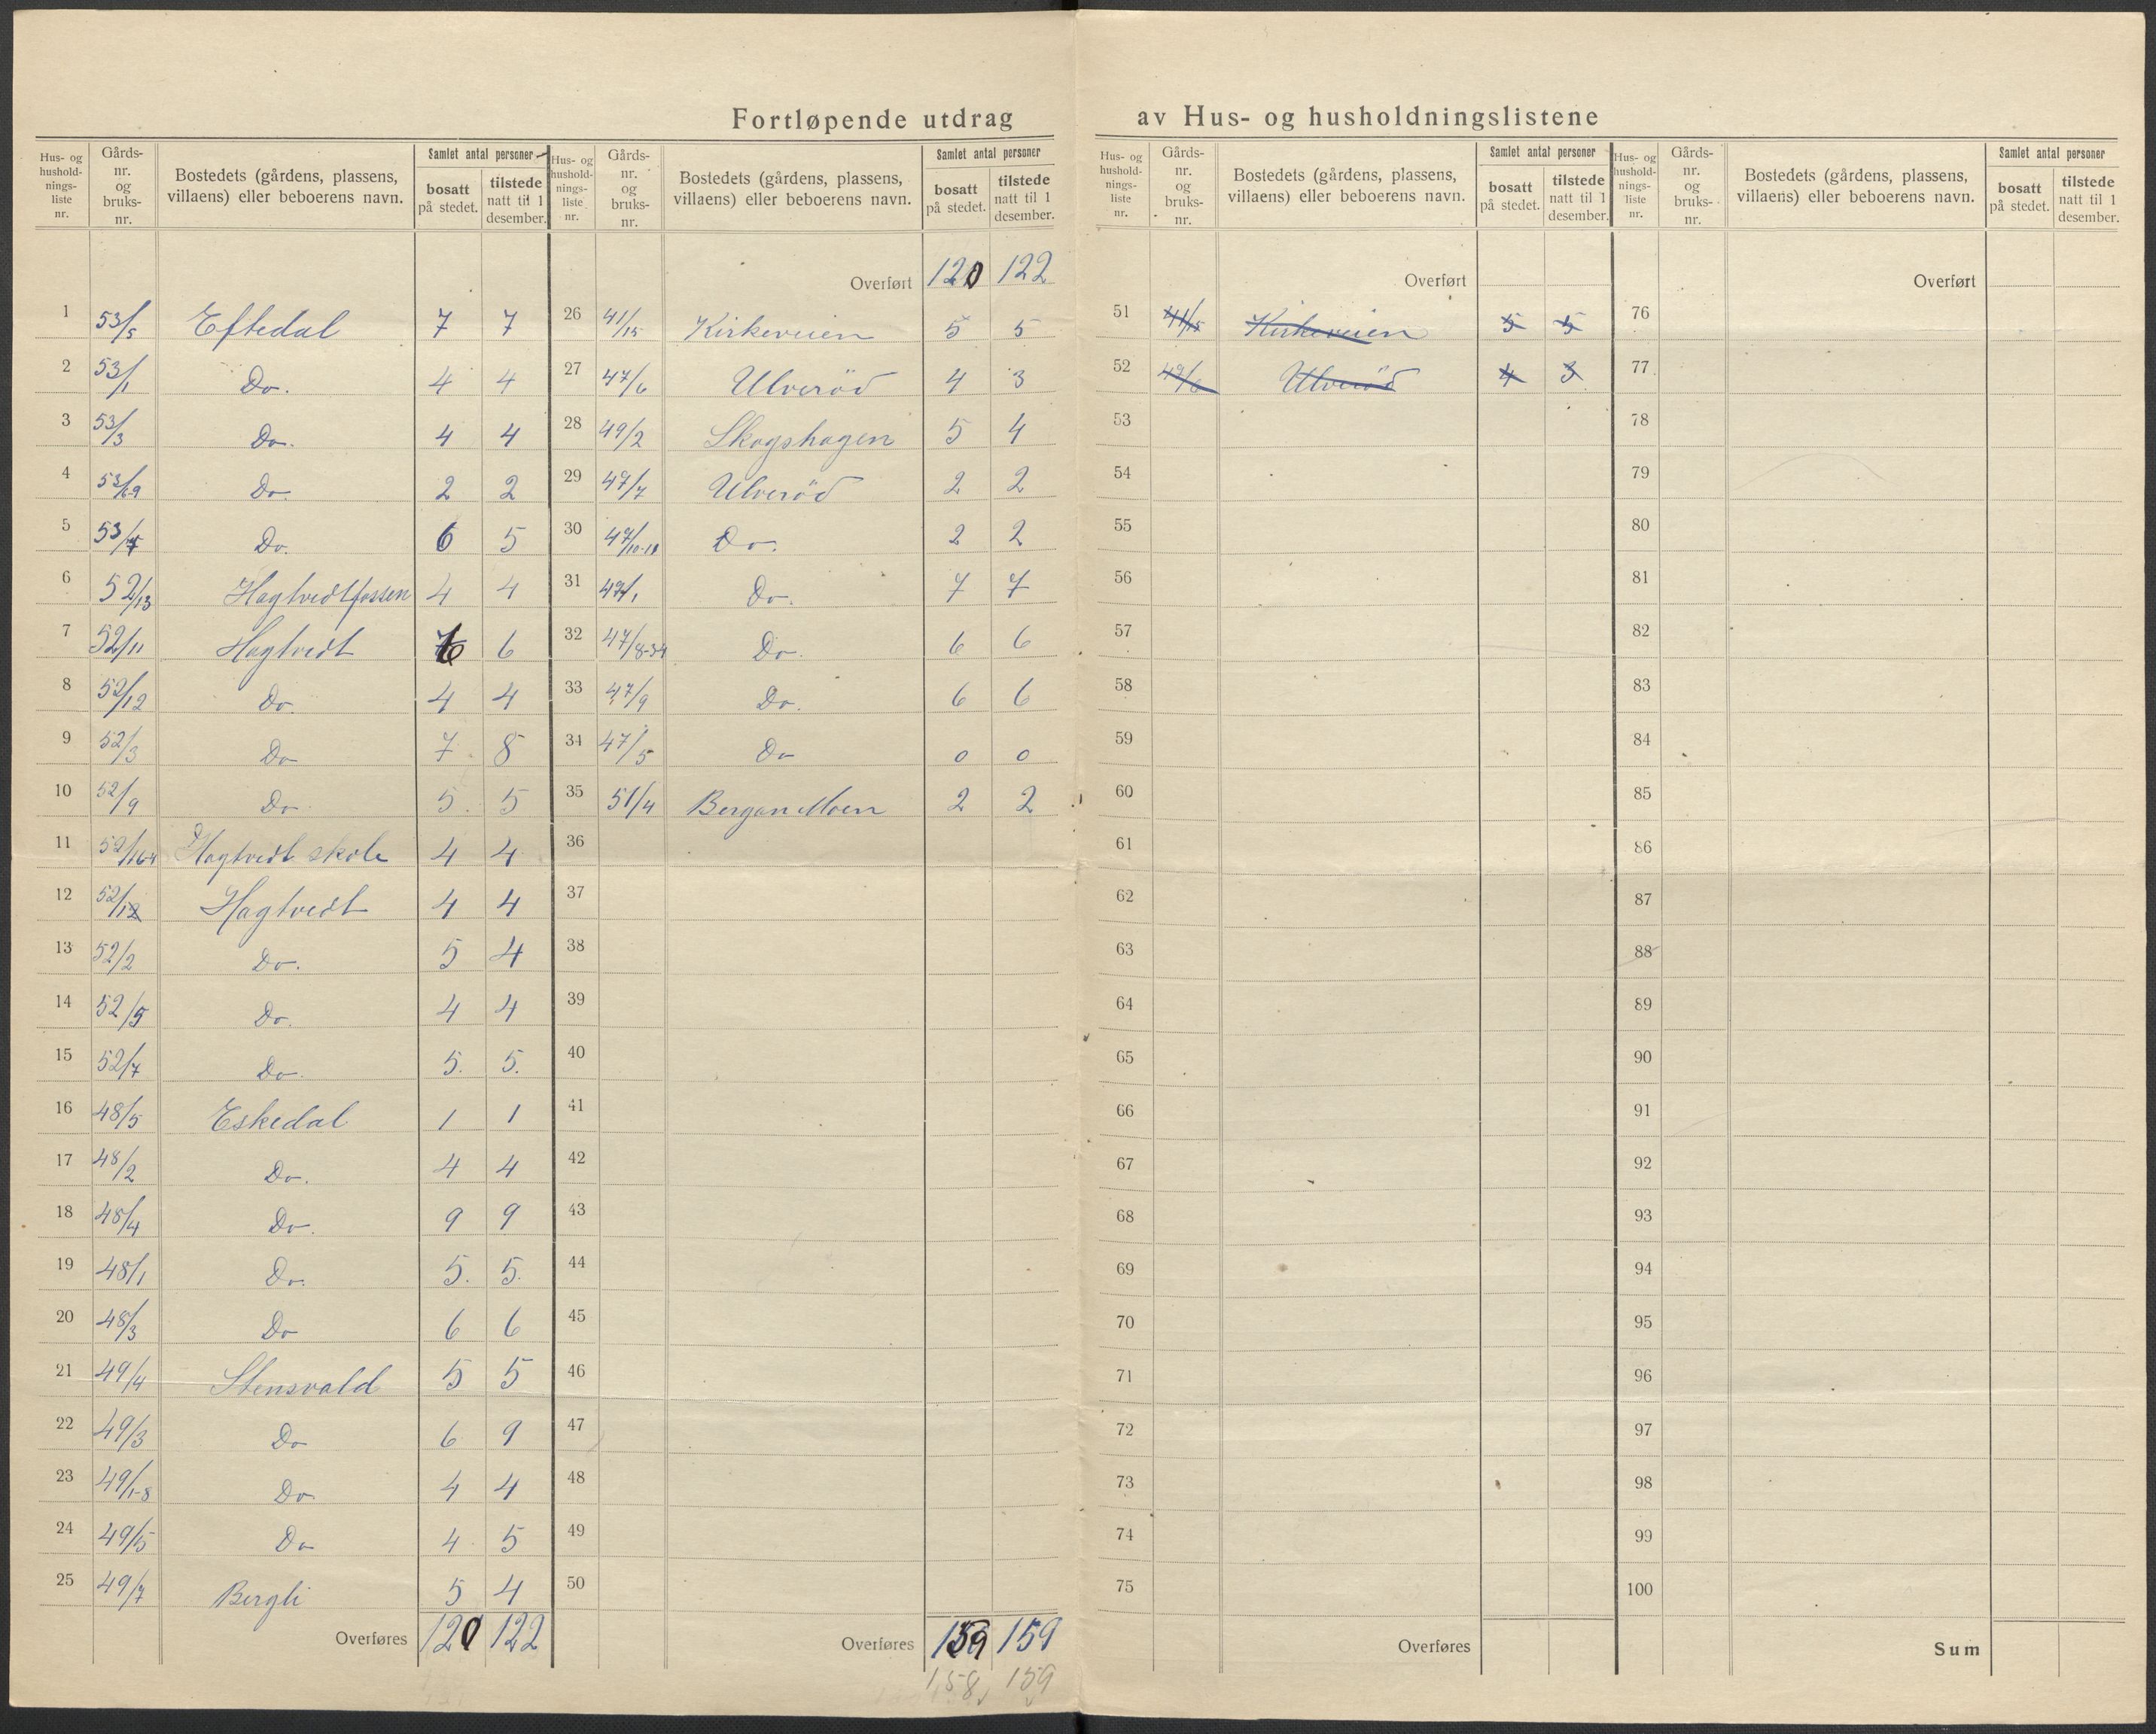 Fortløpende utdrag av Hus- og husholdningslistene
Hus- og hushold-nings-liste nr. | Gårds-nr. og bruks-nr. | Bostedets (gårdens, plassens, villaens) eller beboerens navn. | Samlet antal personer | bosatt på stedet. | tilstede natt til 1 desember.
1 53/5 Eftedal 7 7
2 53/1 Do. 4 4
3 53/3 Do. 4 4
4 53/6-9 Do. 2 2
5 53/4 Do. 6 5
6 52/13 Hagtvedtfossen 4 4
7 52/11 Hagtvedt 6 6
8 52/12 Do. 4 4
9 52/3 Do 7 8
10 52/9 Do. 5 5
11 52/16-4 Hagtvedt skole 4 4
12 52/1 Hagtvedt 4 4
13 52/2 Do. 5 4
14 52/5 Do. 4 4
15 52/7 Do. 5. 5.
16 48/5 Eskedal 1 1
17 48/2 Do. 4 4
18 48/4 Do. 9 9
19 48/1 Do. 5. 5.
20 48/3 Do 6 6
21 49/4 Stensvald 5 5
22 49/3 Do 6 9
23 49/1-8 Do. 4 4
24 49/5 Do 4 5
25 49/7 Bergli 5 4
Overføres 120 122
Hus- og hushold-nings-liste nr. | Gårds-nr. og bruks-nr. | Bostedets (gårdens, plassens, villaens) eller beboerens navn. | Samlet antal personer | bosatt på stedet. | tilstede natt til 1 desember.
Overført 120 122
26 41/15 Kirkeveien 5 5
27 47/6 Ulveröd 4 3
28 49/2 Skogshagen 5 4
29 47/7 Ulveröd 2 2
30 47/10-11 Do. 2 2
31 47/1 Do. 7 7
32 47/8-34 Do. 6 6
33 47/9 Do. 6 6
34 47/5 Do 0 0
35 51/4 Bergan Moen 2 2
36
37
38
39
40
41
42
43
44
45
46
47
48
49
50
Overføres 159 159
158 159
Hus- og hushold-nings-liste nr. | Gårds-nr. og bruks-nr. | Bostedets (gårdens, plassens, villaens) eller beboerens navn. | Samlet antal personer | bosatt på stedet. | tilstede natt til 1 desember.
Overført
51 41/15 Kirkeveien 5 5
52 47/6 Ulveröd 4 3
53
54
55
56
57
58
59
60
61
62
63
64
65
66
67
68
69
70
71
72
73
74
75
Overføres
Hus- og hushold-nings-liste nr. | Gårds-nr. og bruks-nr. | Bostedets (gårdens, plassens, villaens) eller beboerens navn. | Samlet antal personer | bosatt på stedet. | tilstede natt til 1 desember.
Overført
76
77
78
79
80
81
82
83
84
85
86
87
88
89
90
91
92
93
94
95
96
97
98
99
100
Sum